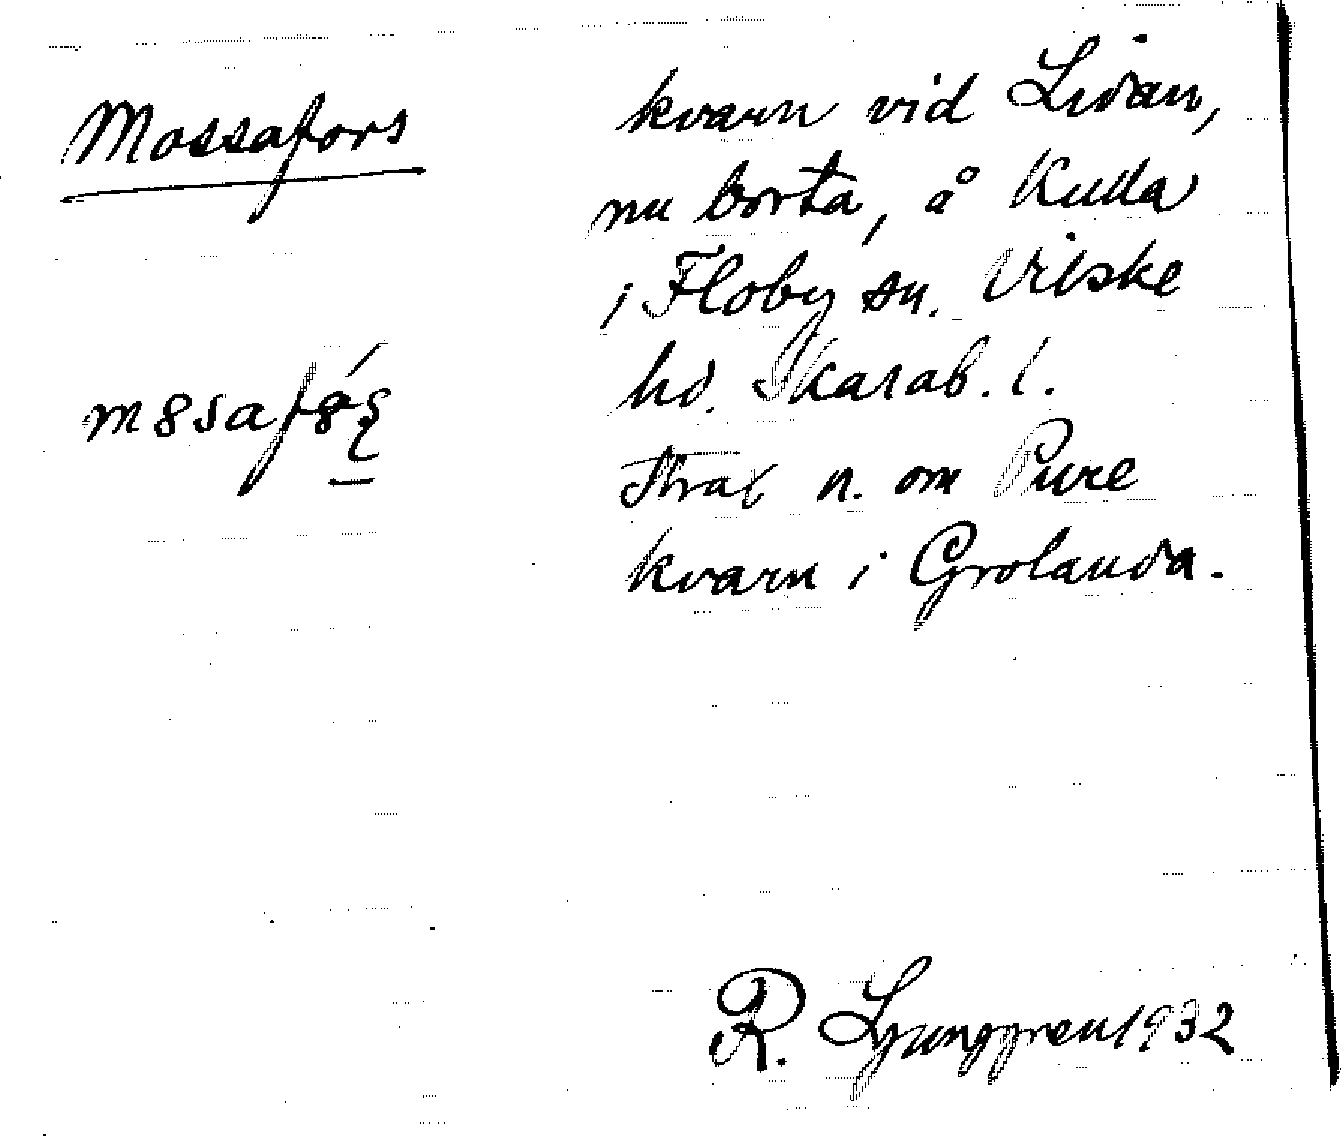 Mossafors
kvarn vid Lidan,
nu borta, å Kulla
i Floby sn. Vilske
hd. Skarab. l.
Strax n. om Pure
kvarn i Grolanda.
R. Ljunggren 1932